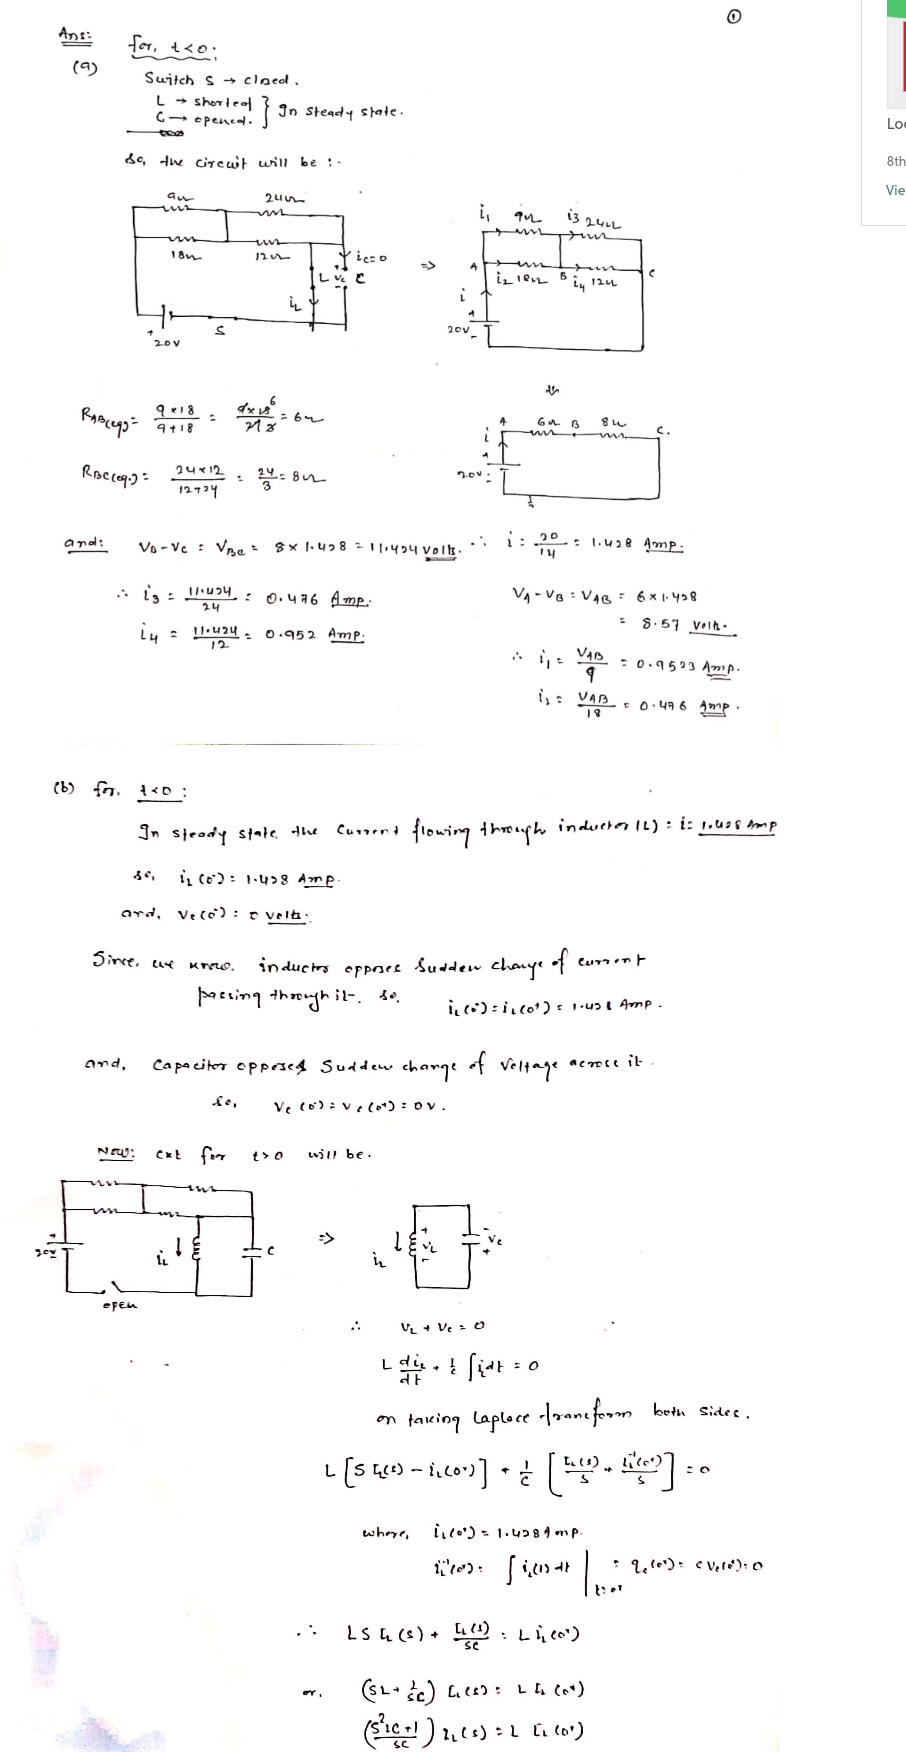 ①
Ans:
for, t<0:
(a)
Switch S → closed.
L → shorted } In steady state.
C → opened.
So, the circuit will be :-
9Ω 24Ω
18Ω 12Ω
ic=0
L Vc C
iL
S
+ 20V
⇒
i1 9Ω i3 24Ω
A i2 18Ω B i4 12Ω C
i
+
20V -
RAB(eq) = 9×18/9+18 = 9×18/27 3 6 = 6Ω
A 6Ω B 8Ω C.
i
+
20V -
RBC(eq.) = 24×12/12+24 = 24/3 = 8Ω
and: VB-VC = VBC = 8×1.428 = 11.424 Volts. ∴ i = 20/14 = 1.428 Amp.
∴ i3 = 11.424/24 = 0.476 Amp.
VA-VB = VAB = 6×1.428
= 8.57 Volts.
i4 = 11.424/12 = 0.952 Amp.
∴ i1 = VAB/9 = 0.9523 Amp.
i2 = VAB/18 = 0.476 Amp.
(b) for, t<0 :
In steady state the current flowing through inductor (L) = i = 1.428 Amp
so, iL(0-) = 1.428 Amp.
and, Vc(0-) = 0 volts.
Since, we know, inductor opposes sudden change of current
passing through it. So, iL(0-) = iL(0+) = 1.428 Amp.
and, Capacitor opposes Sudden change of Voltage across it.
so, Vc(0-) = Vc(0+) = 0V.
Now: ckt for t>0 will be.
+ 20V
iL
C
open
⇒
iL
+ VL -
- Vc +
∴ VL + Vc = 0
L diL/dt + 1/C ∫i dt = 0
on taking Laplace transform both sides.
L [S IL(s) - iL(0+)] + 1/C [IL(s)/S + iL-1(0+)/S] = 0
where, iL(0+) = 1.428 Amp.
iL-1(0+) = ∫ iL(t) dt | t=0+ = qc(0+) = C Vc(0+) = 0
∴ LS IL(s) + IL(s)/SC = L iL(0+)
or, (SL + 1/SC) IL(s) = L IL(0+)
(S²LC+1/SC) IL(s) = L IL(0+)
Loc
8th
Vie